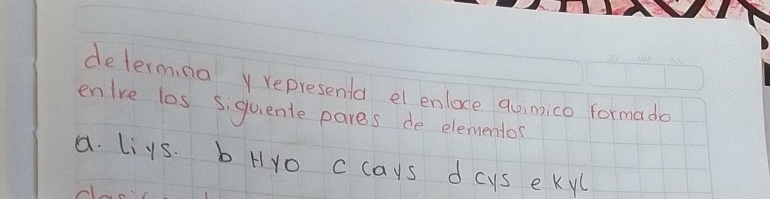 determina y representa el enlace quimico formado
entre los siguiente pares de elementos
a. li y s. b H y O c ca y s d c y s e k y l